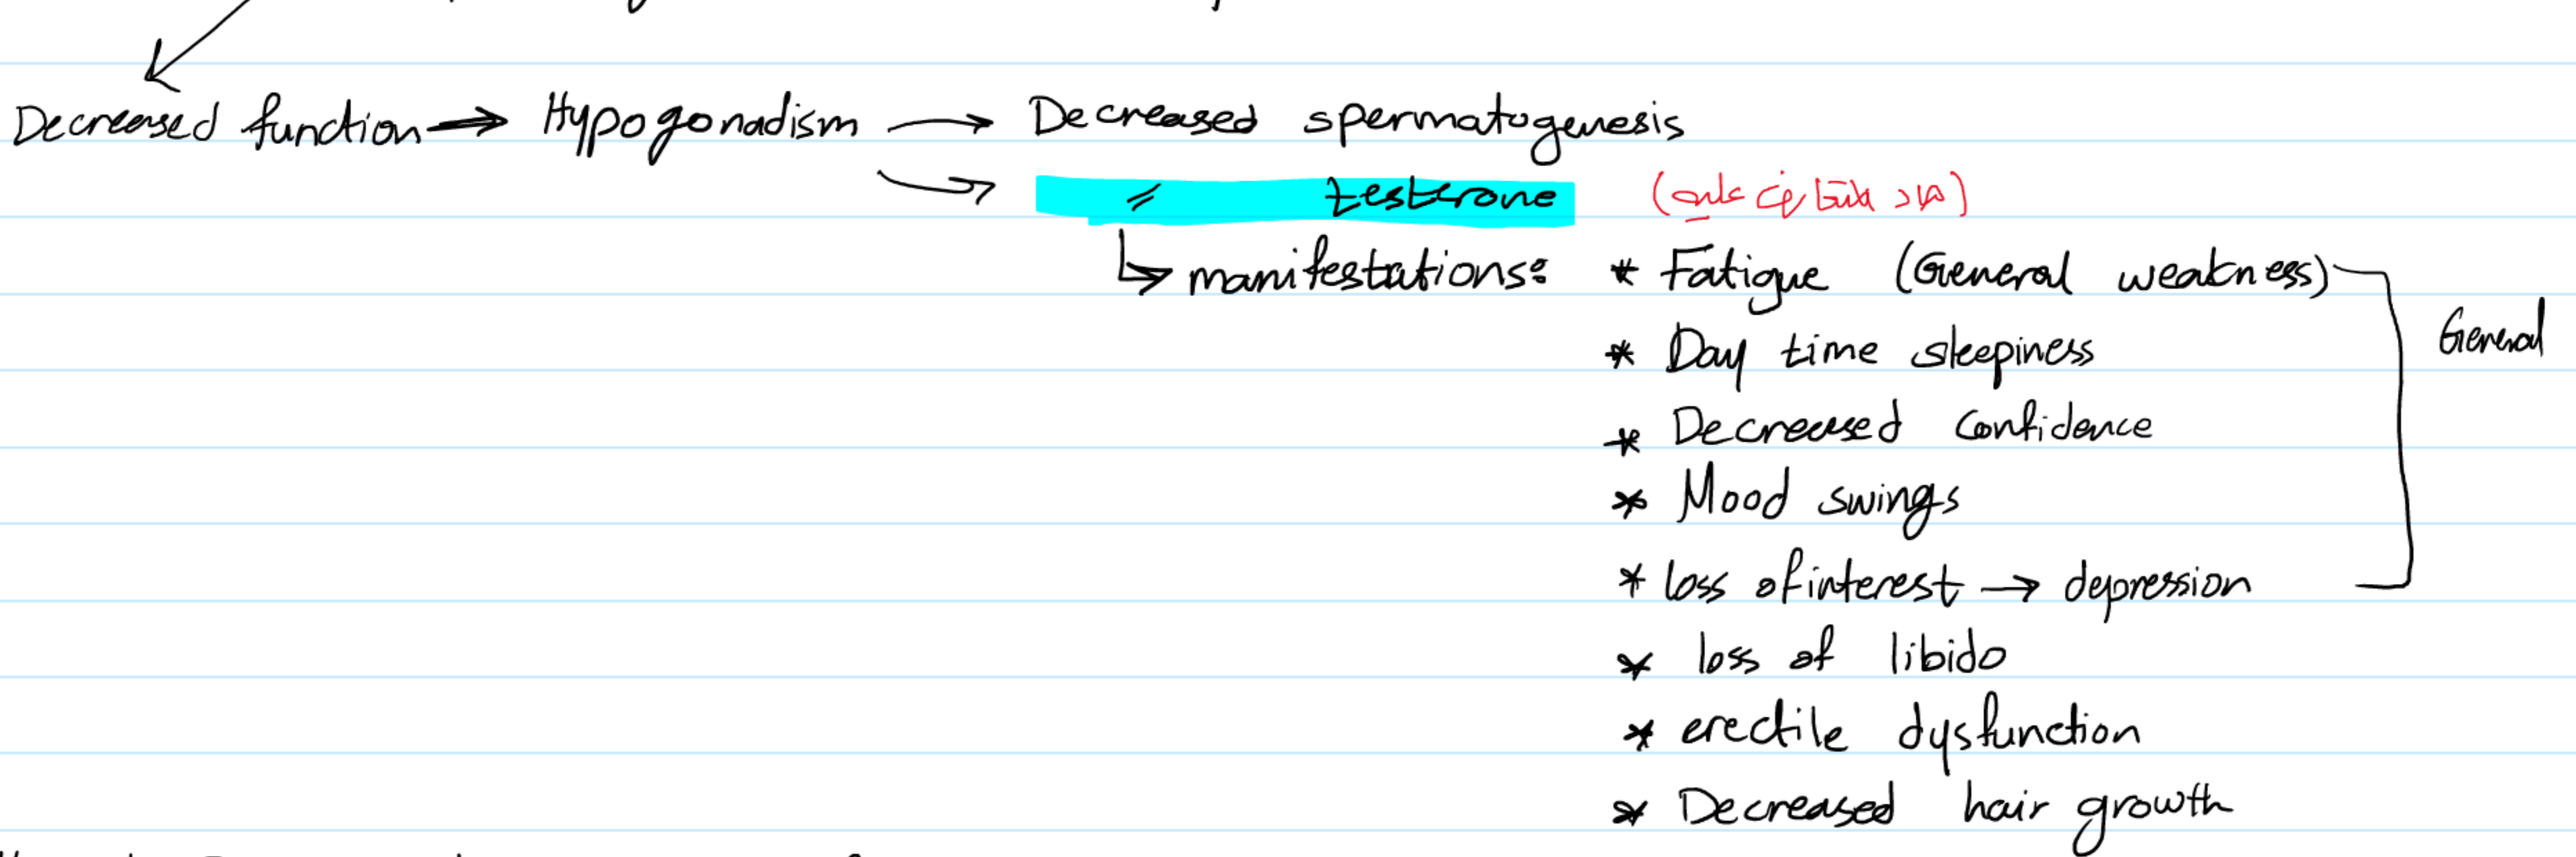 Decreased function → Hypogonadism → Decreased spermatogenesis
→ 〃 testerone (هاد هيك في عليه)
↳ manifestations: * Fatigue (General weakness)
General
* Day time sleepiness
* Decreased confidence
* Mood swings
* loss of interest → depression
* loss of libido
* erectile dysfunction
* Decreased hair growth